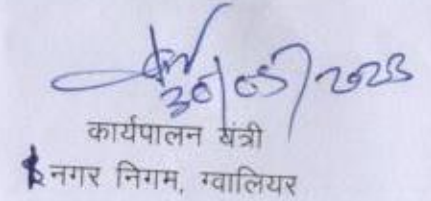 30/05/2023
कार्यपालन यंत्री
नगर निगम, ग्वालियर